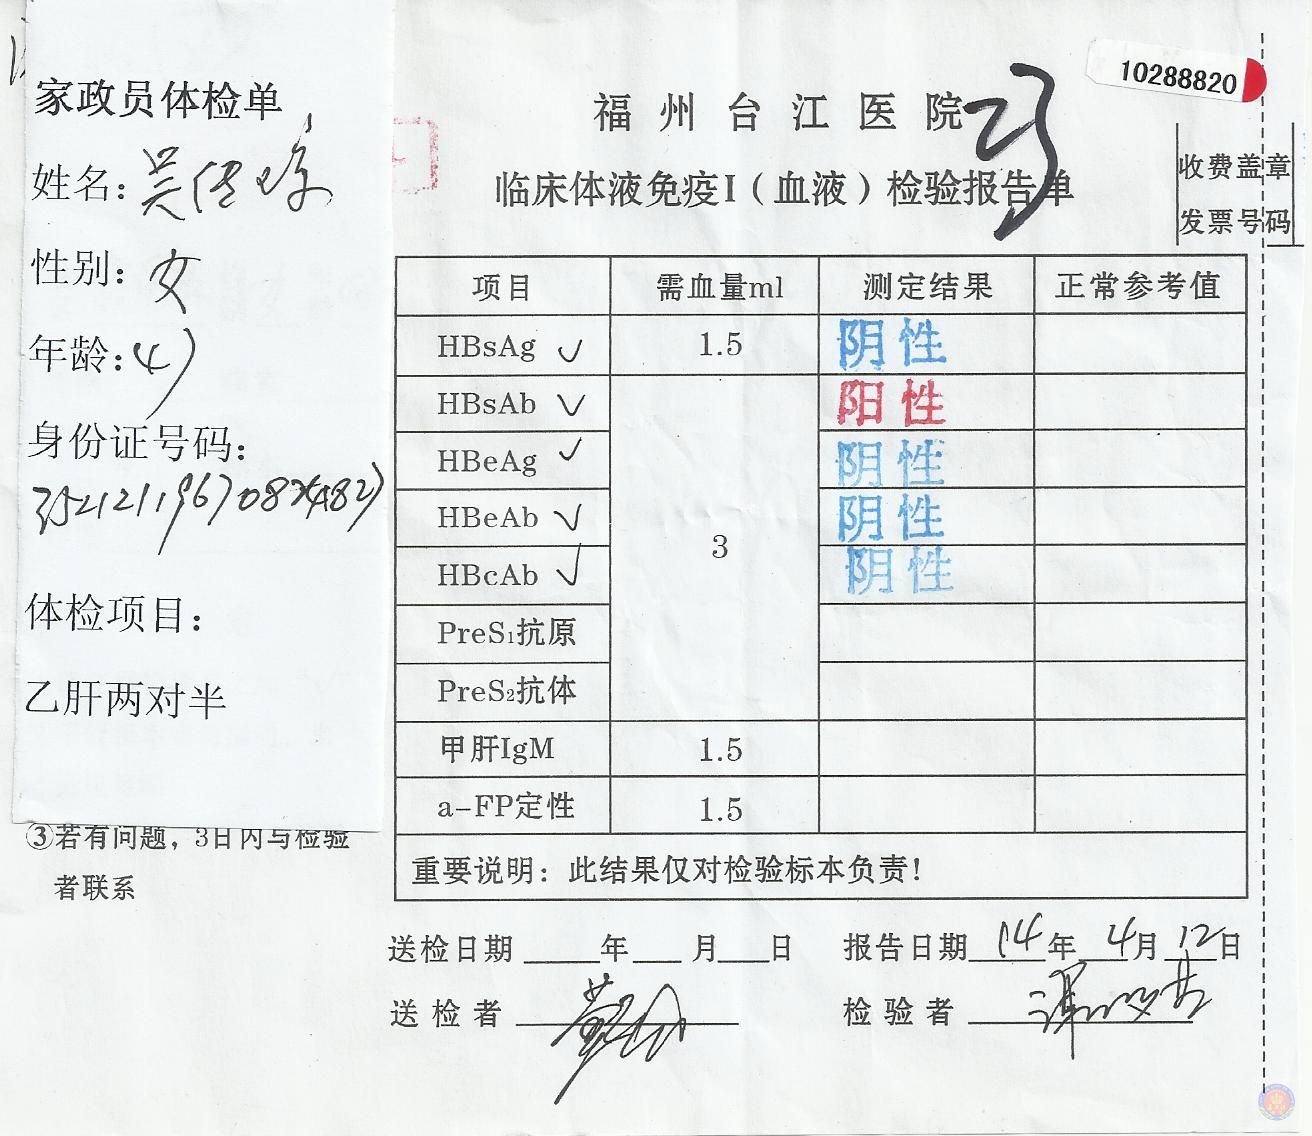 家政员体检单
姓名：吴
性别：女
年龄：47
身份证号码：
体检项目：
乙肝两对半
③若有问题，3日内与检验
者联系
10288820
福州台江医院
临床体液免疫I（血液）检验报告单
收费盖章
发票号码
项目 需血量ml 测定结果 正常参考值
HBsAg ✓ 1.5 阴性
HBsAb ✓ 阳性
HBeAg ✓ 阴性
HBeAb ✓ 3 阴性
HBcAb ✓ 阴性
PreS₁抗原
PreS₂抗体
甲肝IgM 1.5
a-FP定性 1.5
重要说明：此结果仅对检验标本负责！
送检日期 年 月 日 报告日期 14年 4月 12日
送检者 检验者